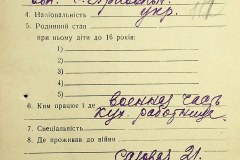 4. Національність укр.
5. Родинний стан
при ньому діти до 16 років:
1)
2)
3)
4)
5)
6. Ким працює і де военная часть
кух. работница
7. Спеціяльність
8. Де проживав до війни
садовая 21.